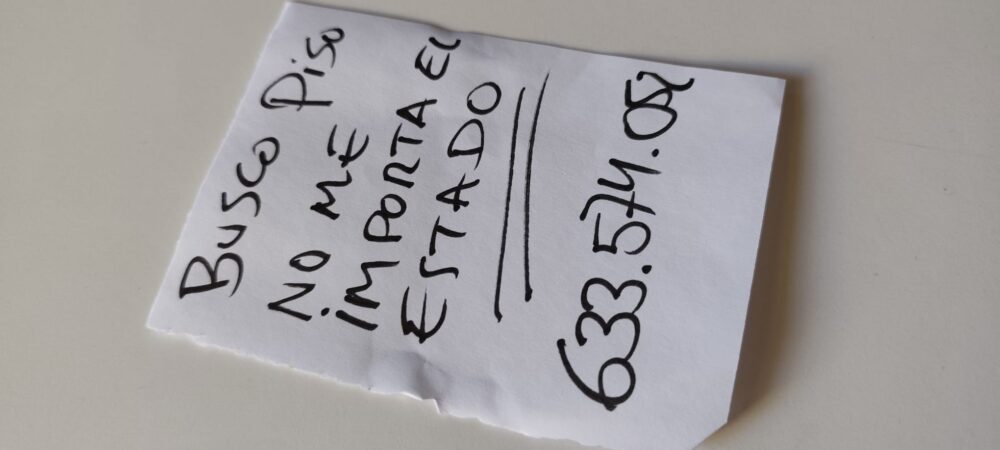 Busco Piso
NO ME
IMPORTA EL
ESTADO
633.574.